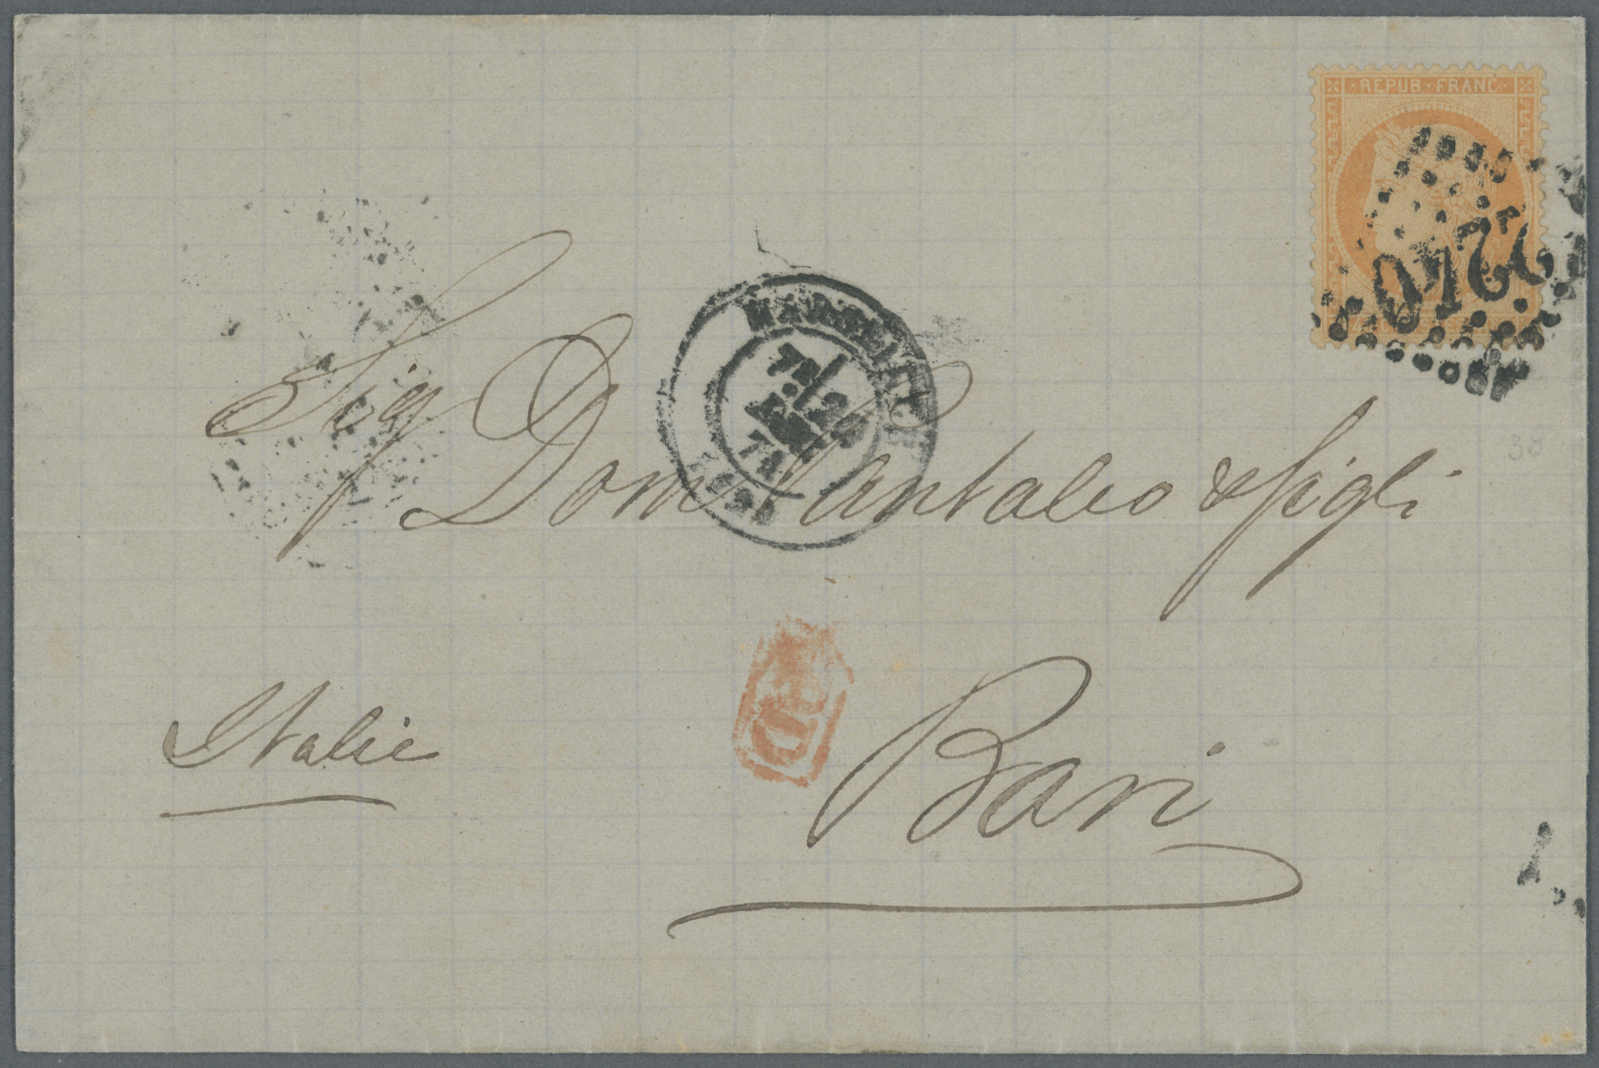 REPUB·FRANC·
2240
MARSEILLE
Sigr
Dom Pantaleo & figli
38
PD
Italie
Bari